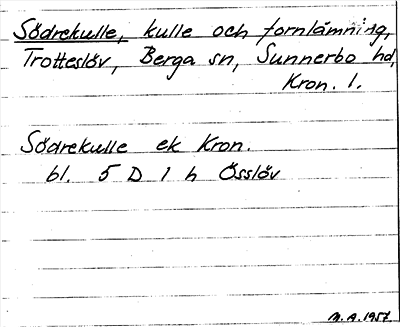 Södrekulle, kulle och fornlämning,
Trotteslöv, Berga sn, Sunnerbo hd,
Kron. l.
Södrekulle ek Kron.
bl. 5 D 1 h Össlöv
M.A. 1957